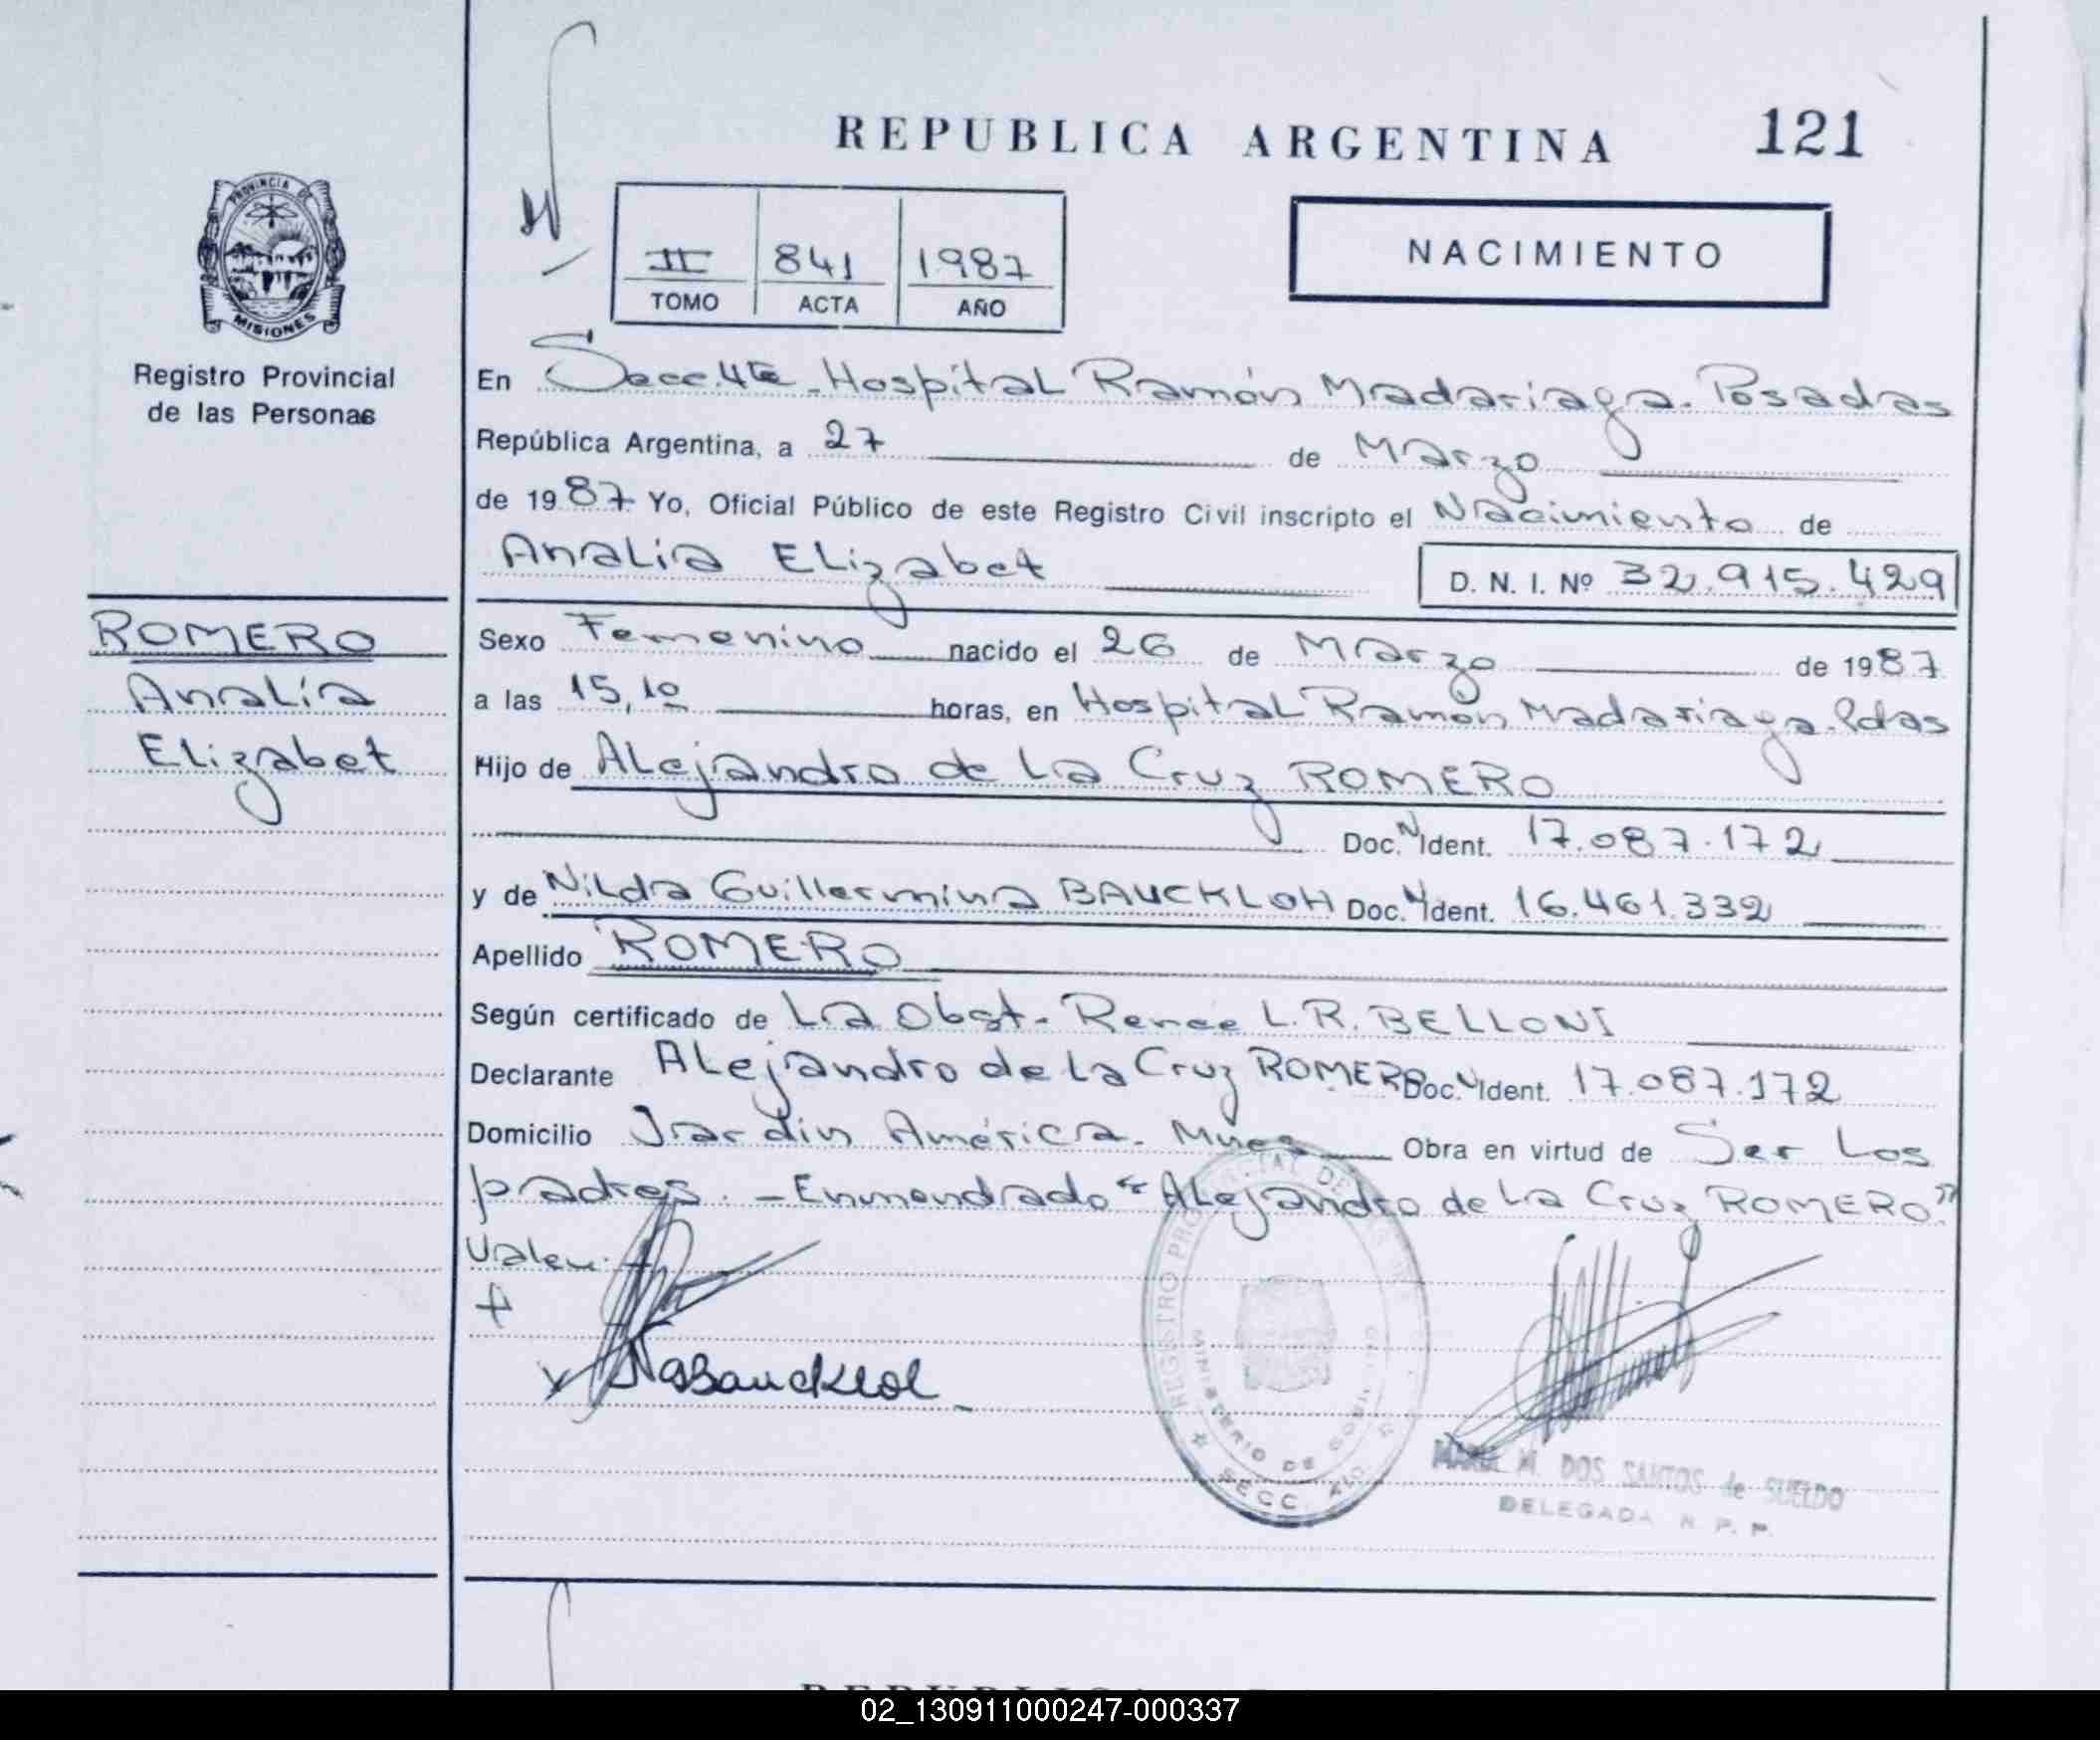 REPUBLICA ARGENTINA 121
PROVINCIA DE
MISIONES
Registro Provincial
de las Personas
II 841 1987
TOMO ACTA AÑO
NACIMIENTO
En Secc. 4ta - Hospital Ramón Madariaga - Posadas
República Argentina, a 27 de Marzo
de 1987 Yo, Oficial Público de este Registro Civil inscripto el Nacimiento de
Analía Elizabet D. N. I. Nº 32.915.429
ROMERO
Analía
Elizabet
Sexo Femenino nacido el 26 de Marzo de 1987
a las 15,10 horas, en Hospital Ramón Madariaga - Pdas
Hijo de Alejandro de La Cruz ROMERO
Doc. N Ident. 17.087.172
y de Nilda Guillermina BAUCKLOH Doc. N Ident. 16.461.332
Apellido ROMERO
Según certificado de La Obst. Renee L. R. BELLONI
Declarante Alejandro de La Cruz ROMERO Doc. N Ident. 17.087.172
Domicilio Jardin América - Mnes Obra en virtud de Ser Los
padres. - Enmendado "Alejandro de La Cruz ROMERO"
Vale.
REGISTRO PROVINCIAL DE LAS
MINISTERIO DE GOB.
SECC. 4ta
MARIA M. DOS SANTOS de SUELDO
DELEGADA R. P. P.
02_130911000247-000337